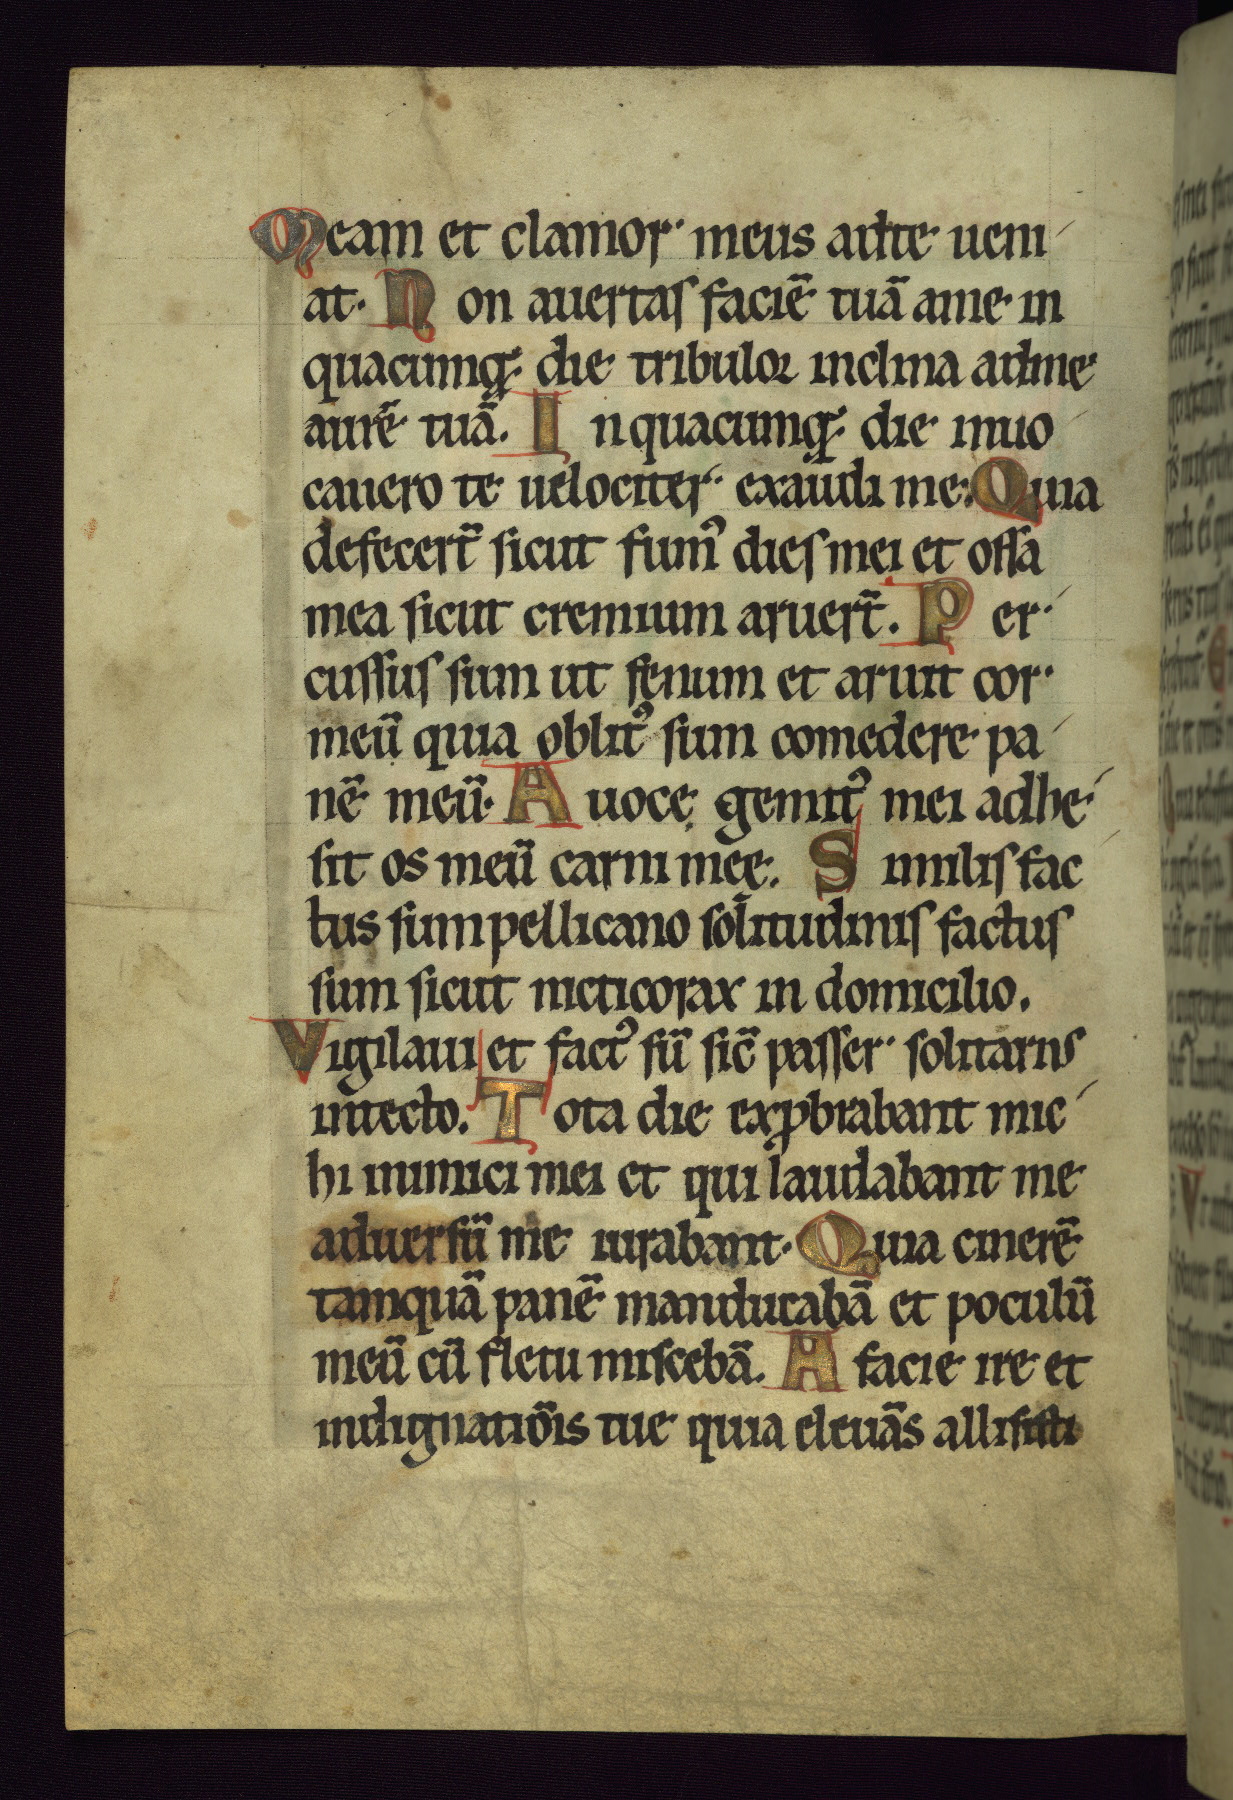 Meam et clamor meus adte ueni
at. Non auertas faciē tuā ame in
quacumq; die tribulor inclina adme
aurē tuā. In quacumq; die inuo
cauero te uelociter exaudi me: Quia
defecert̄ sicut fumꝰ dies mei et ossa
mea sicut cremium aruert̄. Per
cussus sum ut fenum et aruit cor
meū quia oblitꝰ sum comedere pa
nē meū. A uoce gemitꝰ mei adhe
sit os meū carni meę. Similis fac
tus sum pellicano solitudinis factus
sum sicut nicticorax in domicilio.
Vigilaui et factꝰ sū sic̄ passer solitarius
intecto. Tota die exꝓbrabant mic
hi inimici mei et qui laudabant me
aduersū me iurabant. Quia cinerē
tamquā panē manducabā et poculū
meū cū fletu miscebā. A facie ire et
indignatiōis tue quia eleuās allisisti